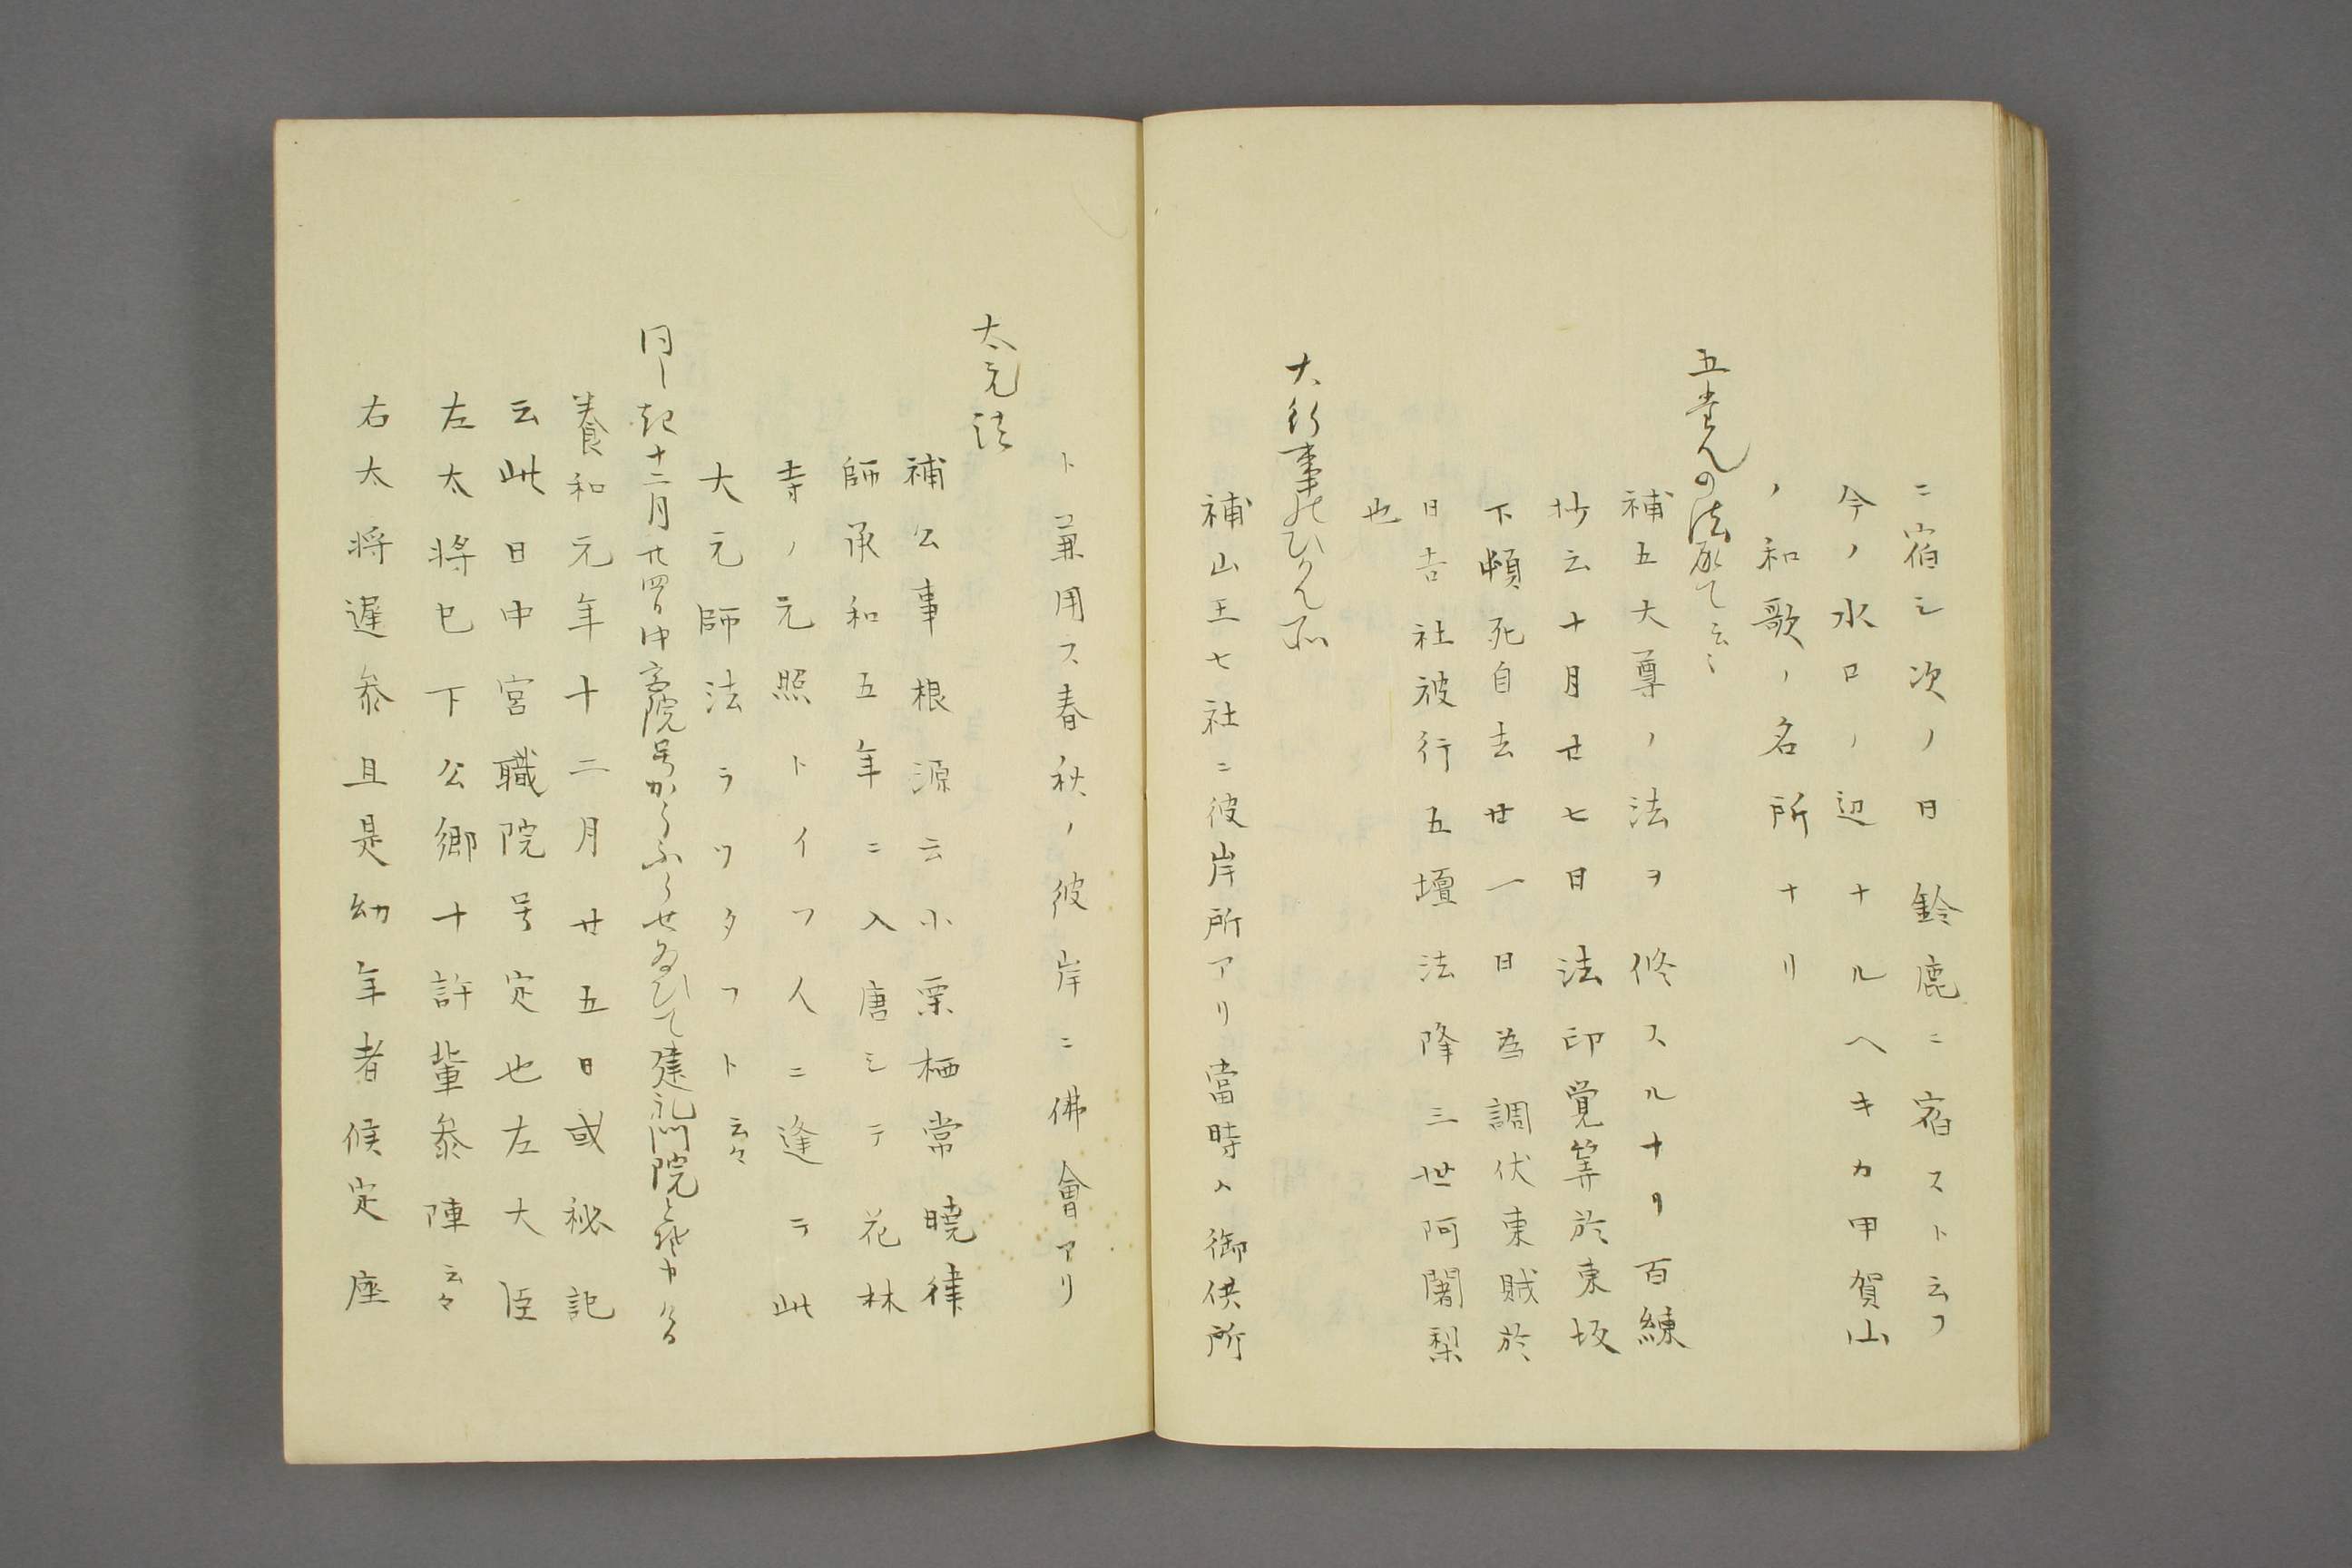 ニ宿シ次ノ日鈴鹿ニ宿スト云フ
今ノ水口ノ辺ナルヘキカ甲賀山
ノ和歌ノ名所ナリ
五壇の法承て云〻
補五大尊ノ法ヲ修スルナリ百練
抄云十月廿七日法印覚筭於東坂
下頓死自去廿一日為調伏東賊於
日吉社被行五壇法降三世阿闍梨
也
大行事のひかん所
補山王七社ニ彼岸所アリ當時ハ御供所
ト兼用ス春秋ノ彼岸ニ佛會アリ
太元法
補公事根源云小栗栖常暁律
師承和五年ニ入唐シテ花林
寺ノ元照トイフ人ニ逢テ此
大元師法ヲツタフト云々
同し記十二月廿四日中宮院号かうふらせ給ひて建礼門院とそ申ける
養和元年十二月廿五日或秘記
云此日中宮職院号定也左大臣
左大将已下公卿十許輩参陣云々
右大将遅参且是幼年者候定座